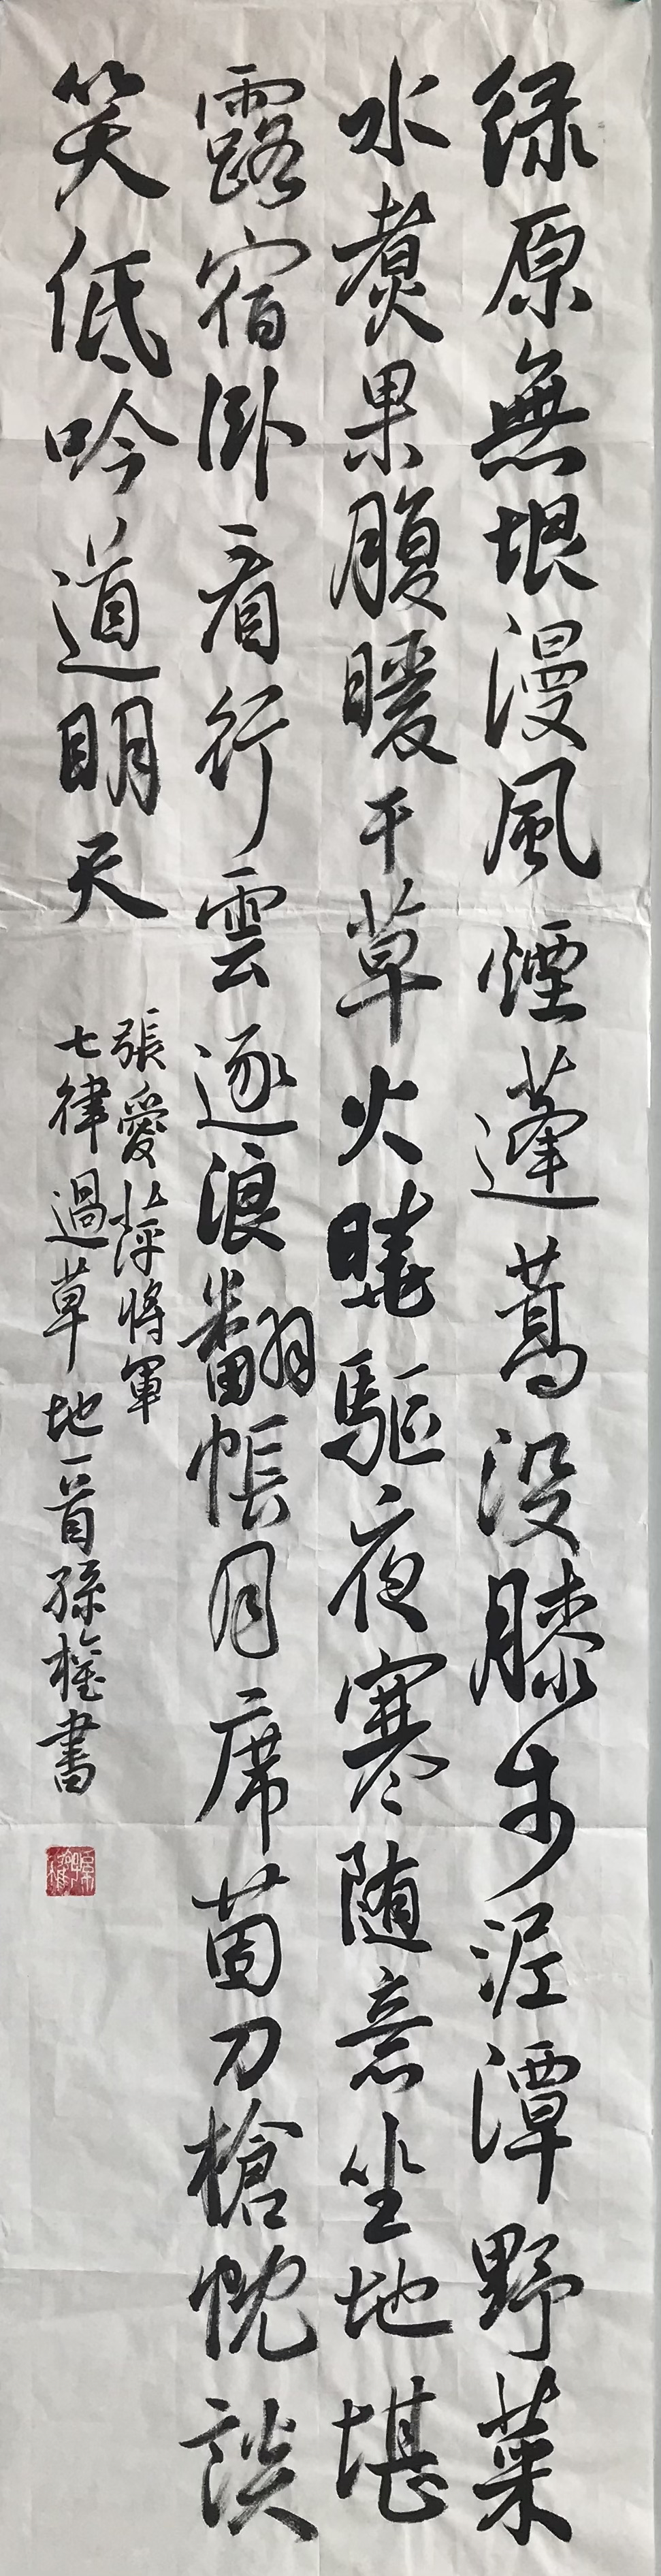 绿原無垠漫風煙蓬蒿没膝步泥潭野菜
水煮果腹暖干草火燒驅夜寒随意坐地堪
露宿卧看行雲逐浪翻帳月席茵刀槍枕談
笑低吟道明天
張愛萍將軍
七律過草地一首孫權書